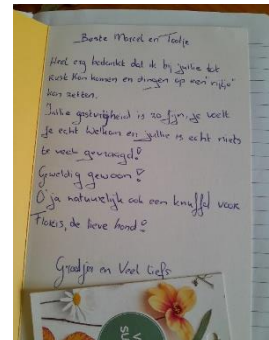 Beste Marcel en Tootje
Heel erg bedankt dat ik bij jullie tot
rust kon komen en dingen op een rijtje
kon zetten.
Jullie gastvrijheid is zo fijn, je voelt
je echt welkom en jullie is echt niets
te veel gevraagd!
Gweldig gewoon!
O ja natuurlijk ook een knuffel voor
Floris, de lieve hond!
Groetjes en Veel liefs